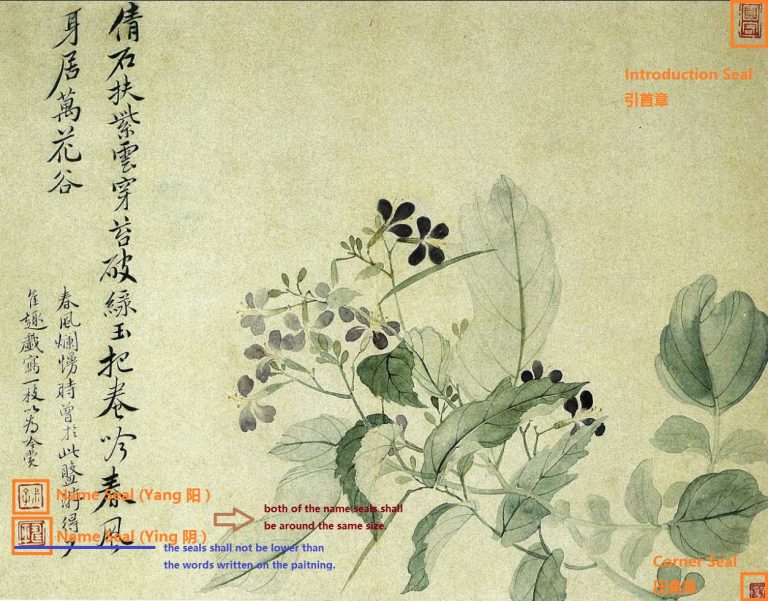 倩石扶紫雲穿苔破綠玉把卷吟春風
身居萬花谷
春風爛熳時曾於此盤得
佳趣戲寫一枝以為吟賞
Introduction Seal
引首章
Name Seal (Yang 阳 )
Name Seal (Ying 阴 )
both of the name seals shall
be around the same size.
the seals shall not be lower than
the words written on the paitning.
Corner Seal
压角章